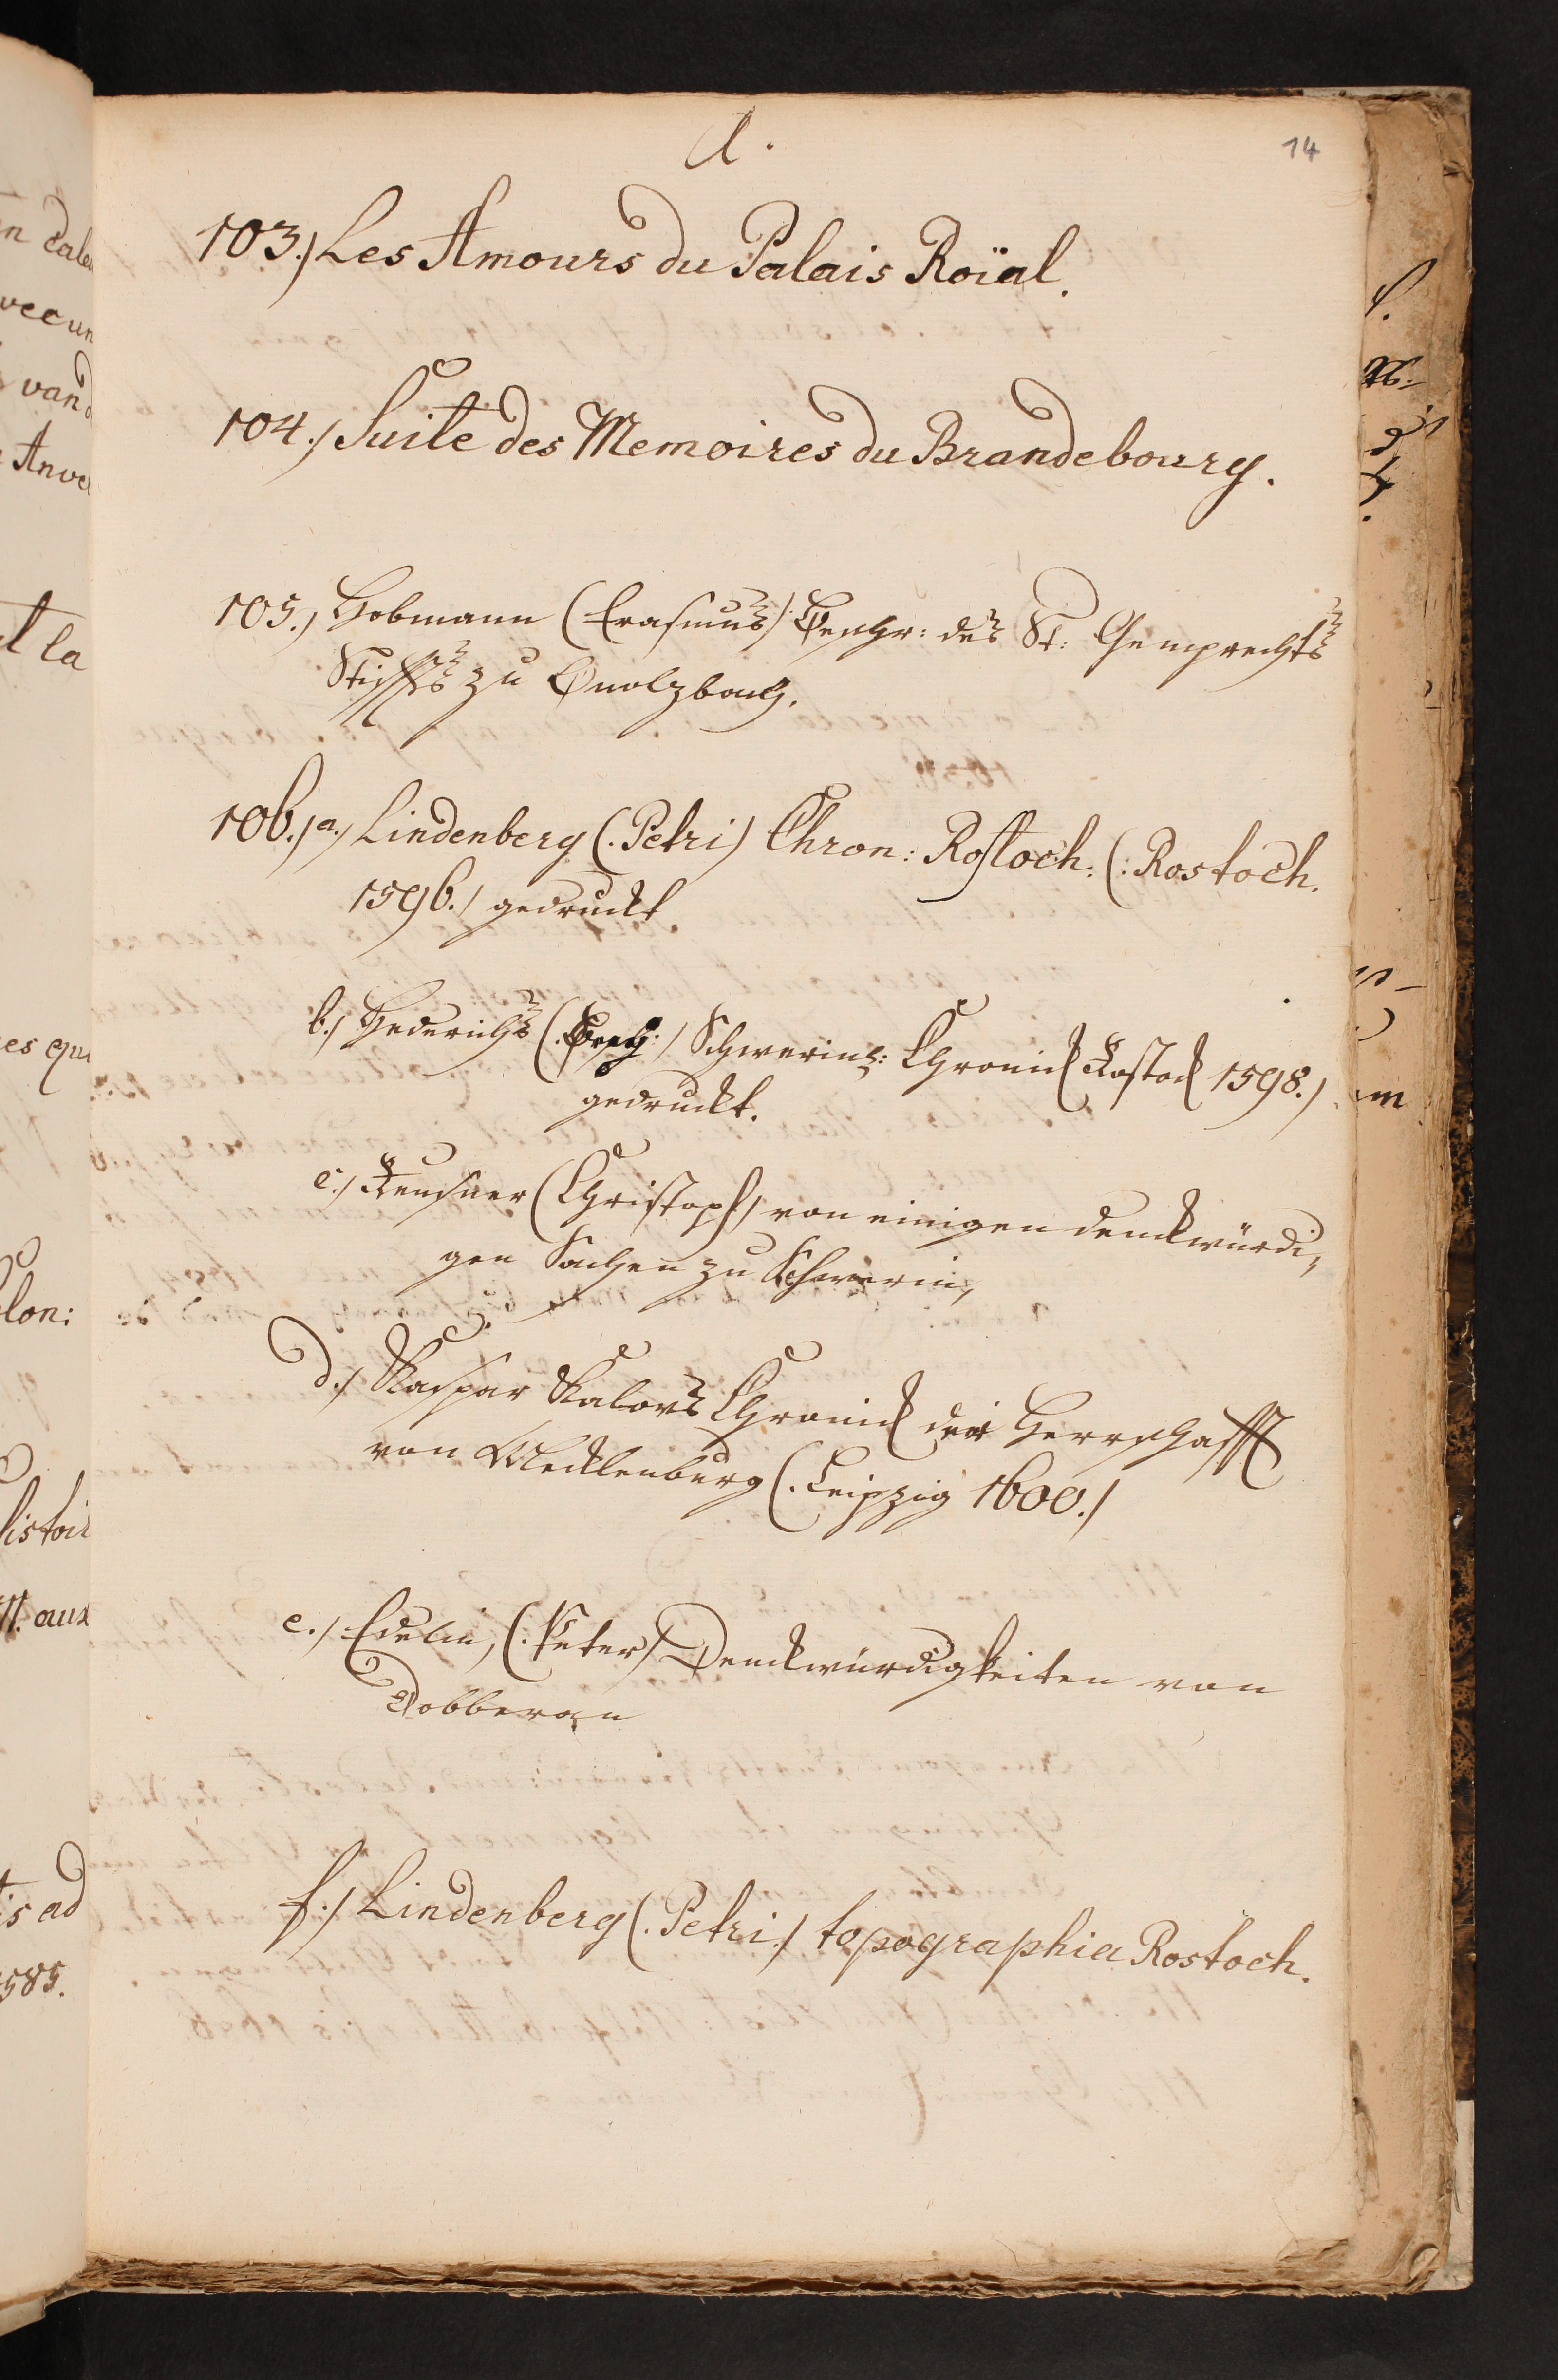 A.
14
103.) Les Amours du Palais Roïal.
104.) Suite des Memoires du Brandebourg.
105.) Hobmann (Erasmus) Beschr: des St: Gumprechts
Stiffts zu Onolzbach.
106.) a.) Lindenberg (. Petri) Chron: Rostoch: (: Rostoch.
1596.) gedruckt.
b.) Hederichs Schwerins: Chronick Rostock 1598.)
gedruckt.
c.) Reusner (Christoph) von einigen denckwürdi„
gen Sachen zu Schwerin,
d.) Kaspar Kalovs Chronick der Herrschafft
von Mecklenburg (. Leipzig 1600.)
e.) Edelin, (. Peter) Denckwürdigkeiten von
Dobberan
f.) Lindenberg (. Petri.) topographia Rostoch.